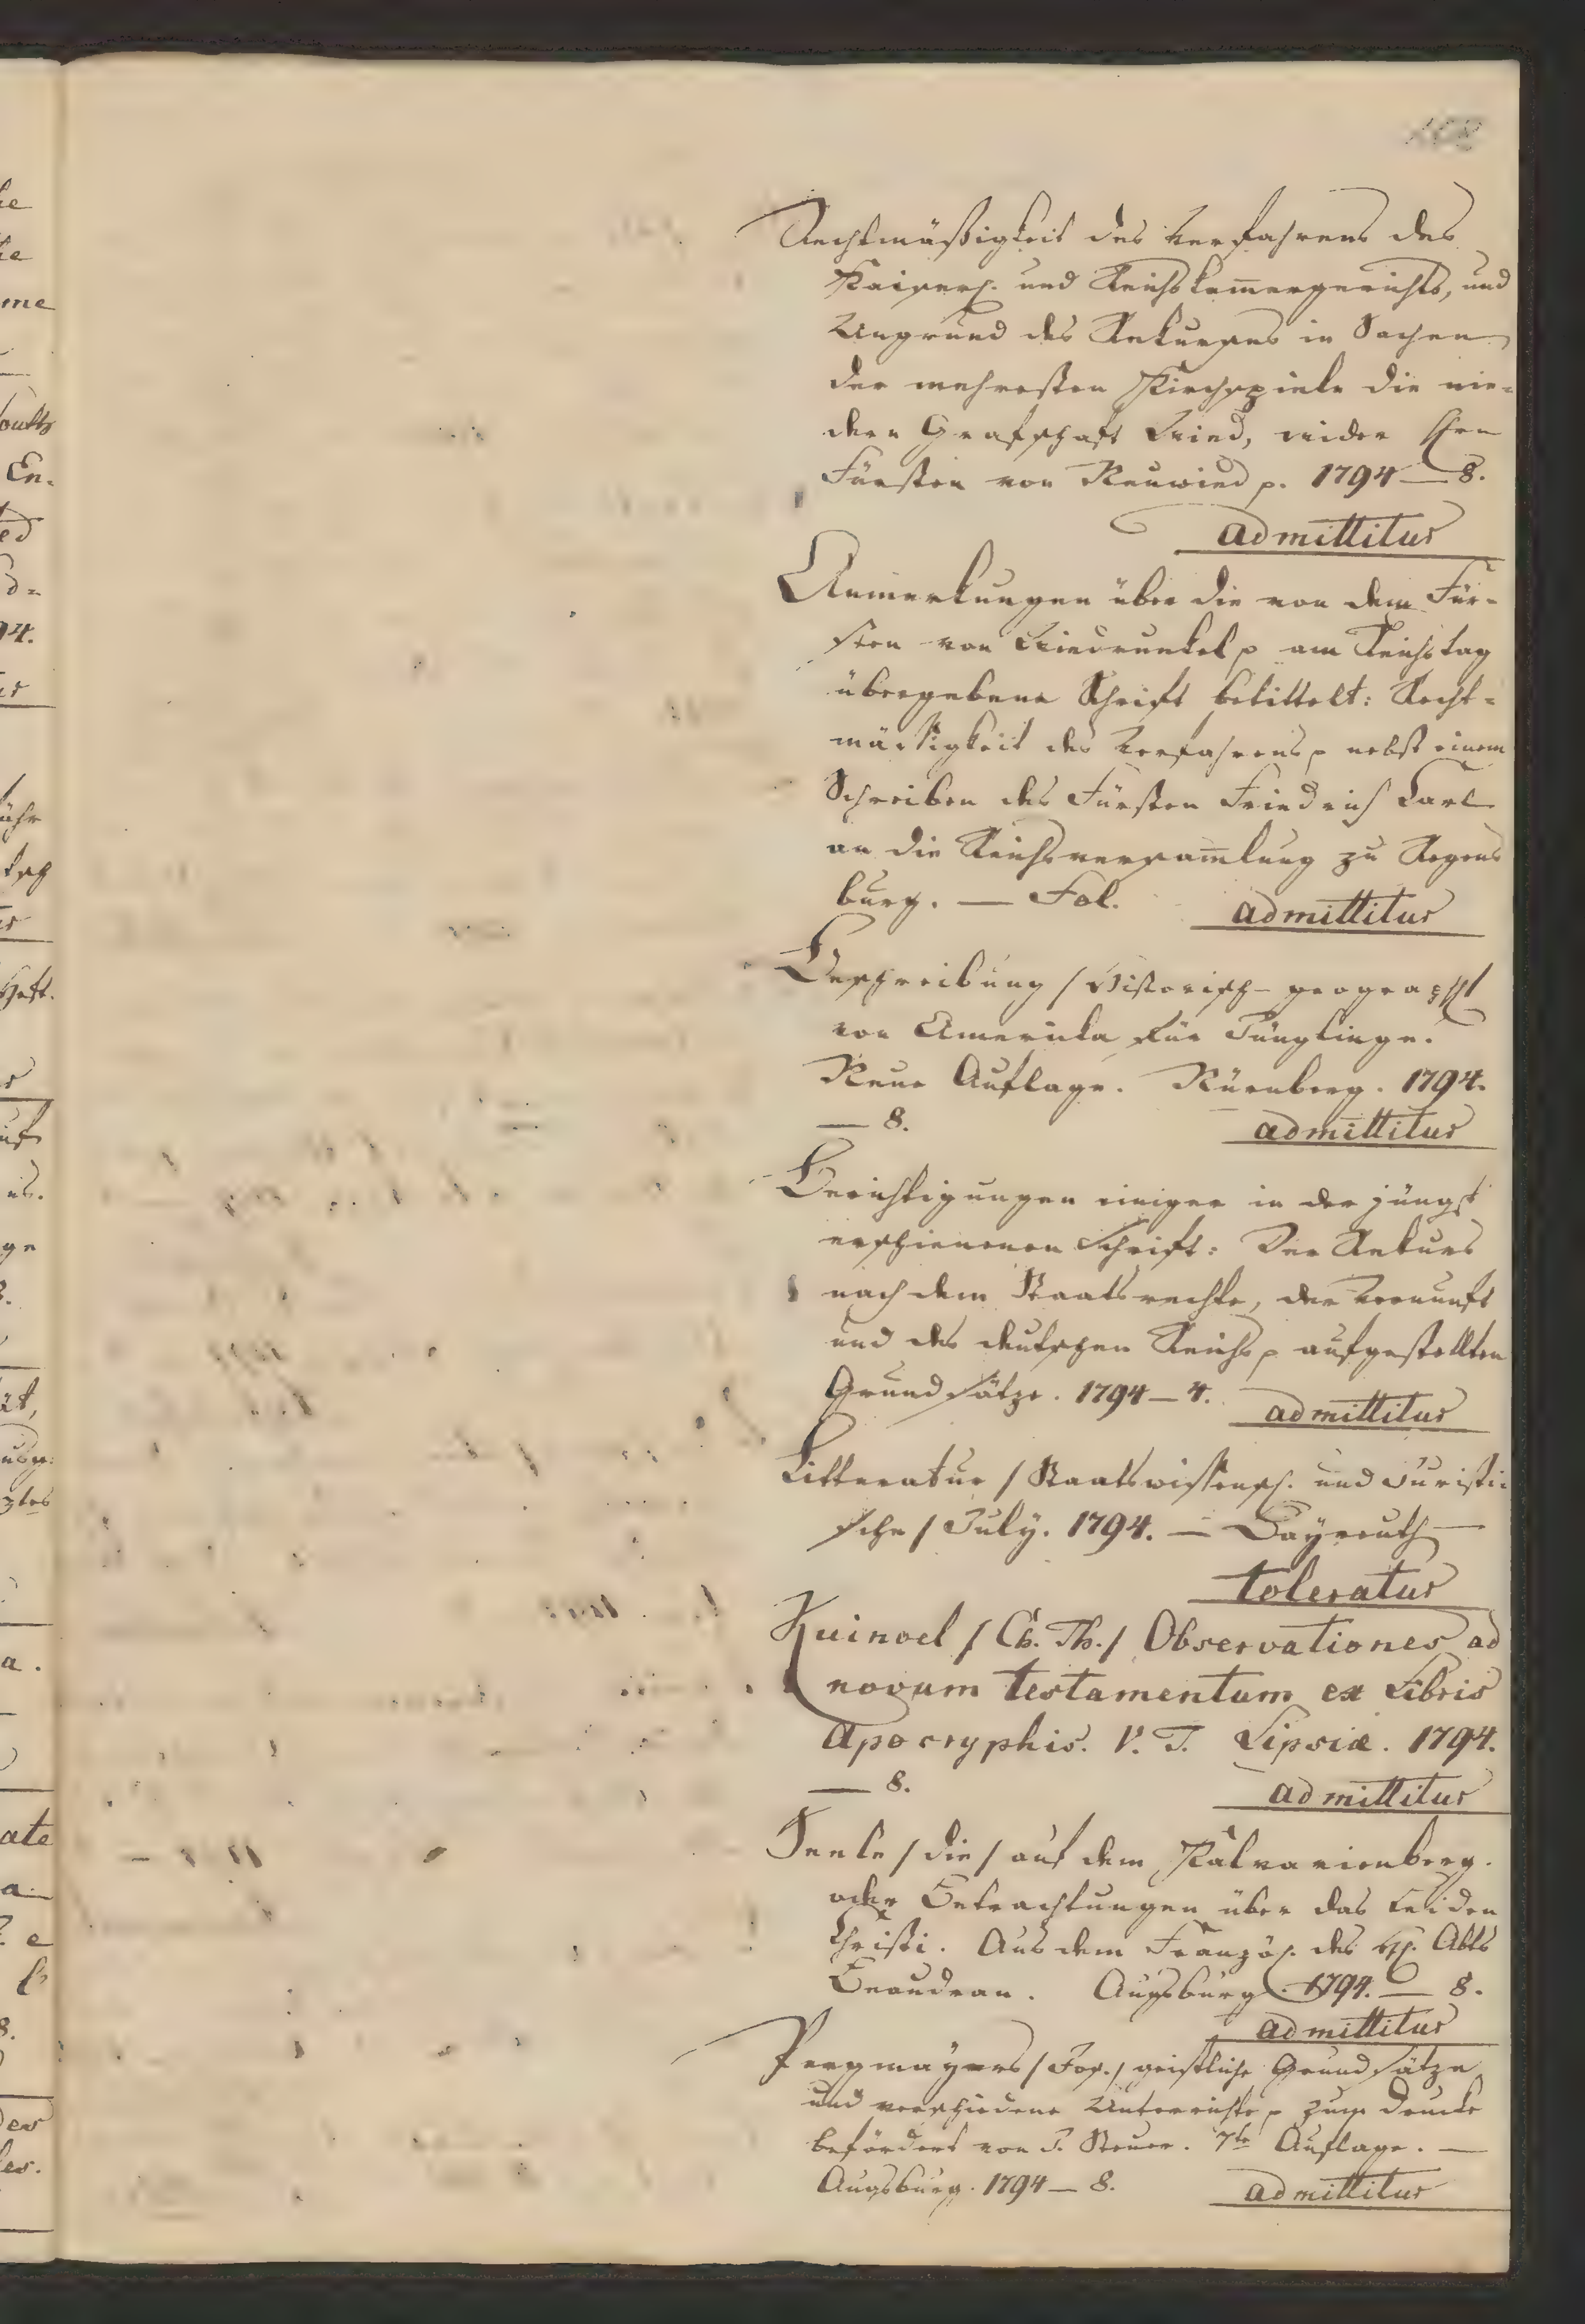 108
Rechtmäßigkeit des Verfahrens des
Kaiserl. und Reichskam̅ergerichts, und
Ungrund des Rekurses in Sachen
der mehresten Kirchspiele die nie-
dern Grafschaft Wied, wider Hrn
Fürsten von Neuwied p. 1794 — 8.
admittitur
Anmerkungen über die von dem Für-
sten von Wiedrunkel p am Reichstag
übergebene Schrift betittelt: Recht-
mässigkeit des Verfahrens p nebst einem
Schreiben des Fürsten Friedrich Carl
an die Reichsversam̅lung zu Regens
burg. — Fol. admittitur
Beschreibung / Historisch-geograph/
von Amerika für Jünglinge.
Neue Auflage. Nürnberg. 1794.
— 8. admittitur
Berichtigungen einiger in der jüngst
erschienenen Schrift: Der Rekurs
nach dem Staatsrechte, der Vernunft
und des deutschen Reichs p aufgestellten
Grundsätze. 1794 — 4. admittitur
Litteratur / Staatswissensch. und Juristi-
sche / July. 1794. — Bayreuth —
toleratur
Kuinoel / Ch. Th. / Observationes ad
novum testamentum ex Libris
apocryphis. V. T. Lipsiæ. 1794.
— 8. admittitur
Seele / die / auf dem Kalvarienberg.
oder Betrachtungen über das Leiden
Christi. Aus dem Französ. des H. Abts
Beaudran. Augsburg. 1794. — 8.
admittitur
Pergmayers / Jos. / geistliche Grundsätze
und verschiedene Unterrichte p zum Drucke
befördert von J. Steurer. 7te Auflage. —
Augsburg. 1794 — 8. admittitur